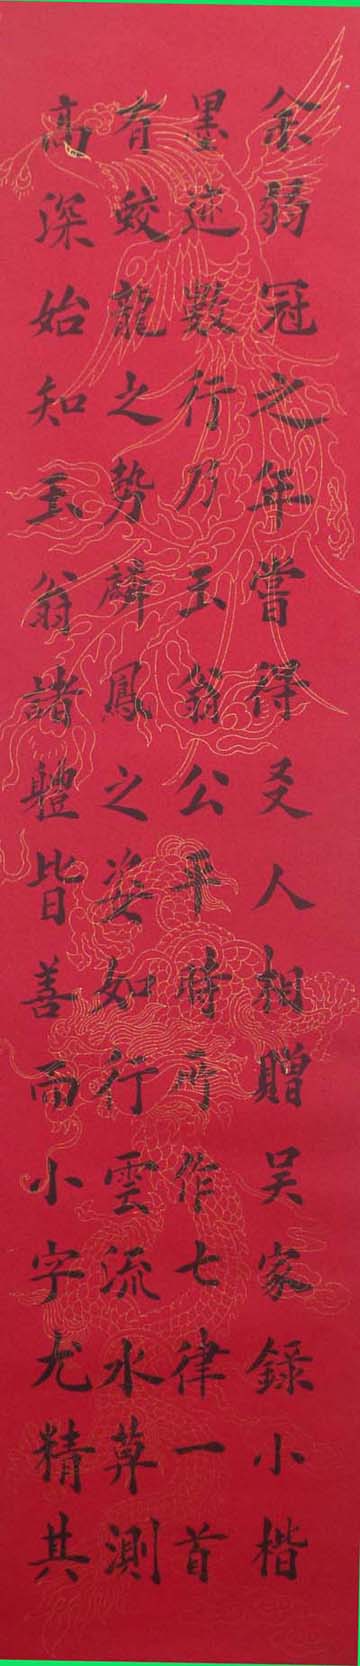 余弱冠之年嘗得友人相贈吴家録小楷
墨迹數行乃玉翁公平時所作七律一首
有蛟龍之勢麟鳳之姿如行雲流水莫測
高深始知玉翁諸體皆善而小字尤精其